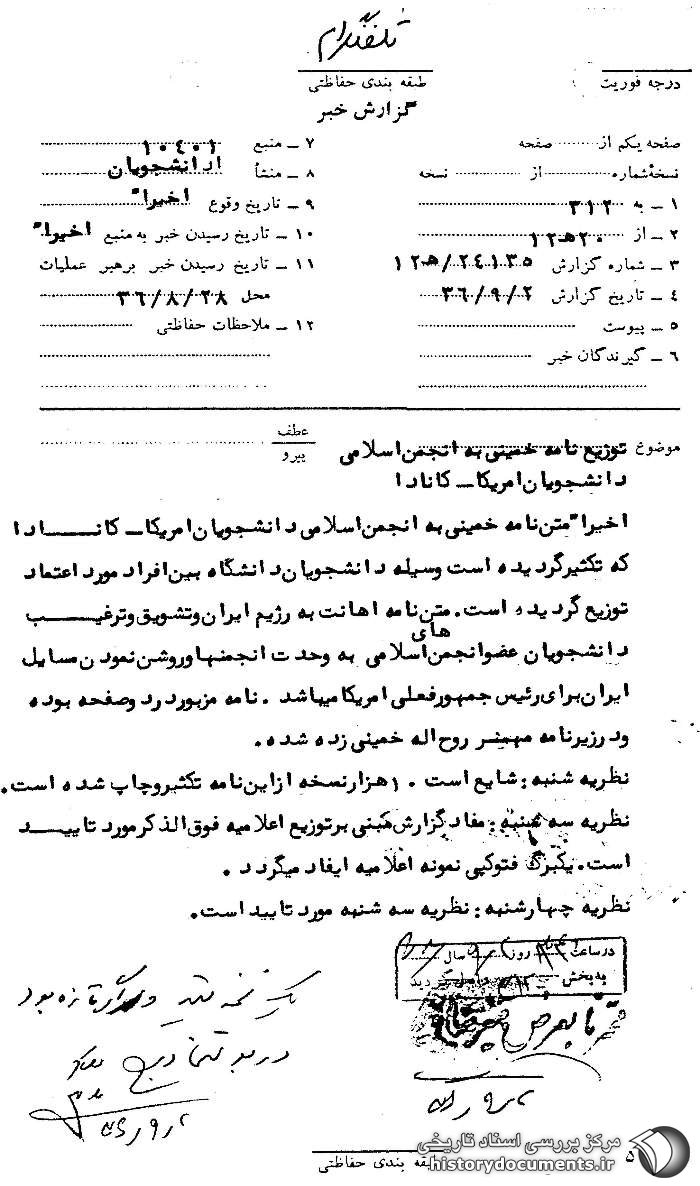 تلفنگرام
درجه فوریت
طبقه بندی حفاظتی
گزارش خبر
صفحه یکم از صفحه
نسخهٔ شماره از نسخه
۱ ــ به ۳۱۲
۲ ــ از ۲۰ه۱۲
۳ ــ شماره گزارش ۲۴۱۳۵/ه۱۲
۴ ــ تاریخ گزارش ۳۶/۹/۲
۵ ــ پیوست
۶ ــ گیرندگان خبر
۷ ــ منبع ۱۰۴۰۱
۸ ــ منشأ از دانشجویان
۹ ــ تاریخ وقوع اخیرا"
۱۰ ــ تاریخ رسیدن خبر به منبع اخیرا"
۱۱ ــ تاریخ رسیدن خبر برهبر عملیات
محل ۳۶/۸/۲۸
۱۲ ــ ملاحظات حفاظتی
موضوع توزیع نامه خمینی به انجمن اسلامی
عطف
پیرو
دانشجویان امریکا ــ کانادا
اخیرا" متن نامه خمینی به انجمن اسلامی دانشجویان امریکا ــ کانادا
که تکثیر گردیده است وسیله دانشجویان دانشگاه بین افراد مورد اعتماد
توزیع گردیده است. متن نامه اهانت به رژیم ایران و تشویق و ترغیب
دانشجویان عضو انجمن های اسلامی به وحدت انجمنها و روشن نمودن مسایل
ایران برای رئیس جمهور فعلی امریکا میباشد. نامه مزبور در دو صفحه بوده
و در زیر نامه مهر روح اله خمینی زده شده.
نظریه شنبه: شایع است ۱۰ هزار نسخه از این نامه تکثیر و چاپ شده است.
نظریه سه شنبه: مفاد گزارش مبنی بر توزیع اعلامیه فوق الذکر مورد تایید
است. یکبرگ فتوکپی نمونه اعلامیه ایفاد میگردد.
نظریه چهارشنبه: نظریه سه شنبه مورد تایید است.
در ساعت روز سال
به بخش واصل گردید
یک نسخه
طبقه بندی حفاظتی
۵
مرکز بررسی اسناد تاریخی
historydocuments.ir